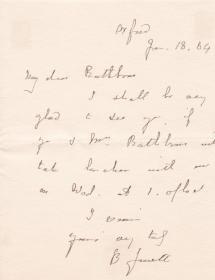 Oxford
Jan. 18. 64
My dear Rathbone
I shall be very
glad to see you if
you & Mrs. Rathbone will
take luncheon with me
on Wed. at 1. o'clock
I remain
yours very truly
B Jowett